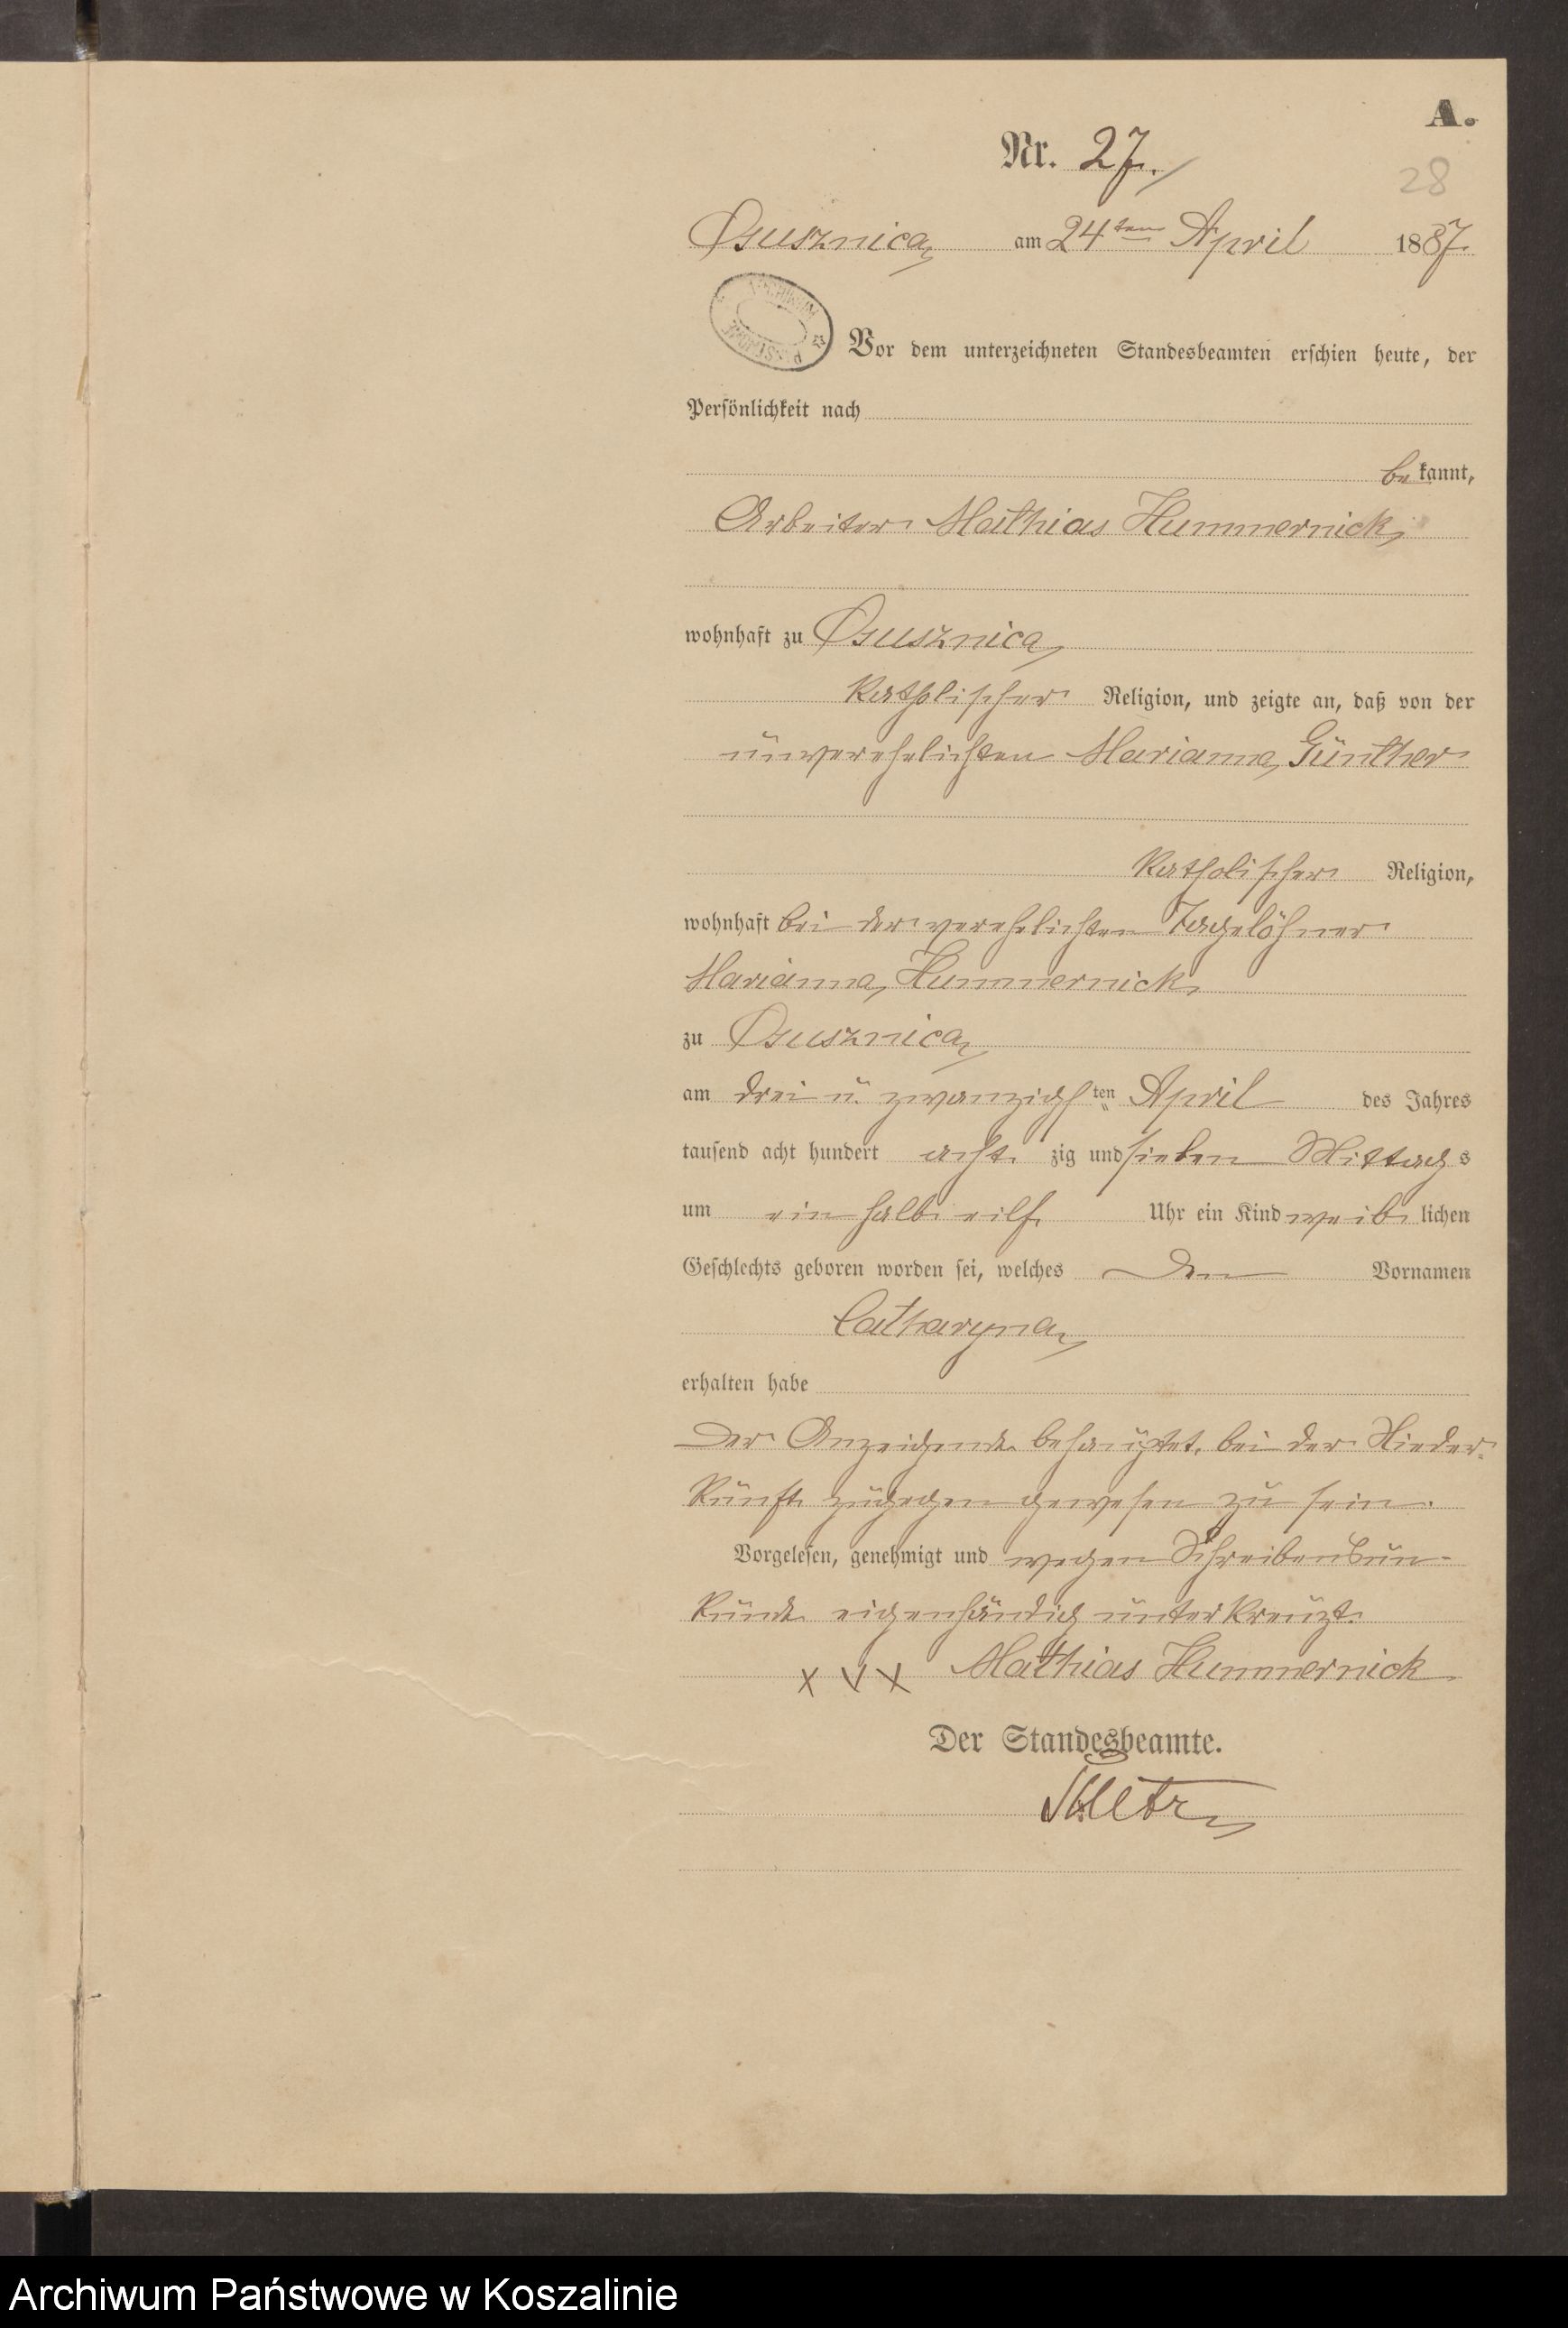 A.
Nr. 27.
28
Osusznica am 24ten April 1887.
Vor dem unterzeichneten Standesbeamten erschien heute, der
Persönlichkeit nach
bekannt,
Arbeiter Mathias Hummernick,
wohnhaft zu Osusznica,
katholischer Religion, und zeigte an, daß von der
unverehelichten Marianna Günther
katholischer Religion,
wohnhaft bei der verehelichten Tagelöhner
Marianna Hummernick,
zu Osusznica,
am drei u. zwanzigsten April des Jahres
tausend acht hundert achtzig und sieben Mittags
um ein halb eilf Uhr ein Kind weiblichen
Geschlechts geboren worden sei, welches den Vornamen
Catharyna,
erhalten habe
Der Anzeigende behauptet, bei der Nieder-
kunft zugegen gewesen zu sein.
Vorgelesen, genehmigt und wegen Schreibensun-
kunde eigenhändig unterkreuzt.
x x x Mathias Hummernick
Der Standesbeamte.
Archiwum Państwowe w Koszalinie